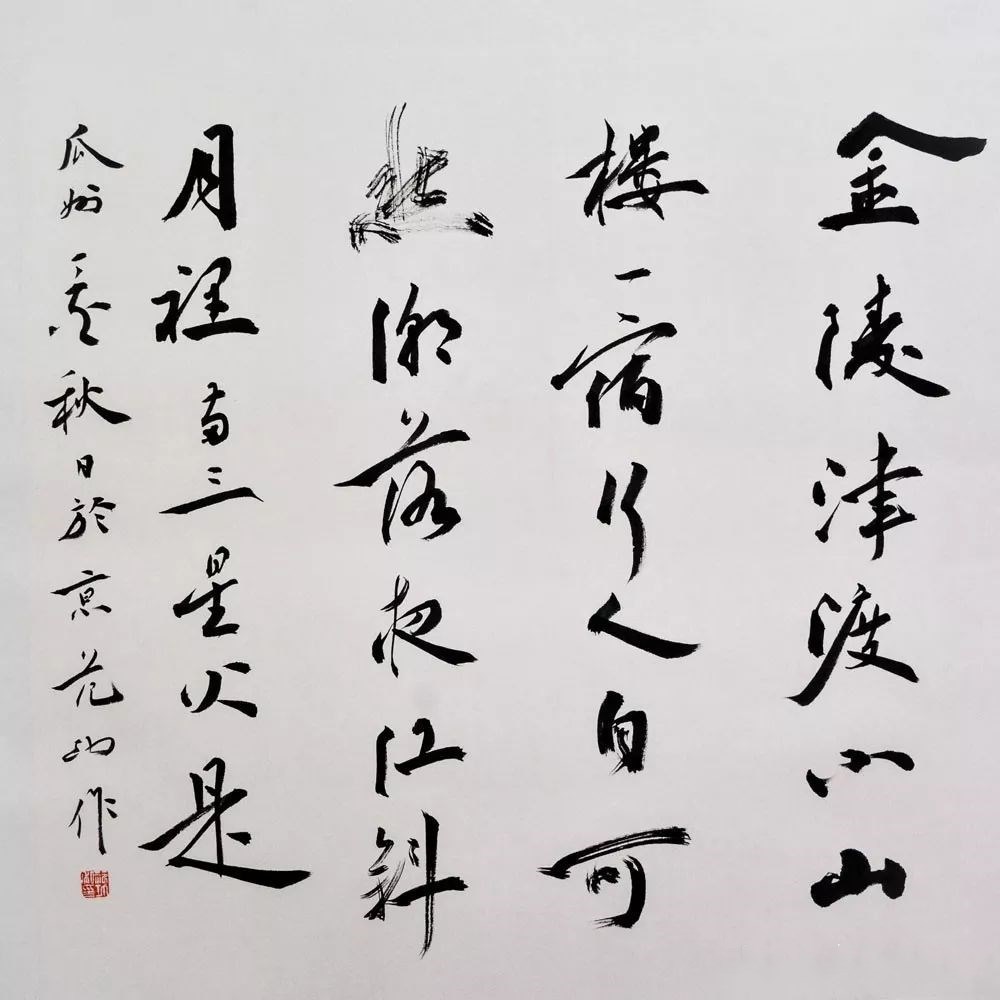 金陵津渡小山
樓一宿行人自可
愁潮落夜江斜
月裡兩三星火是
瓜州 秋日於京 范 作